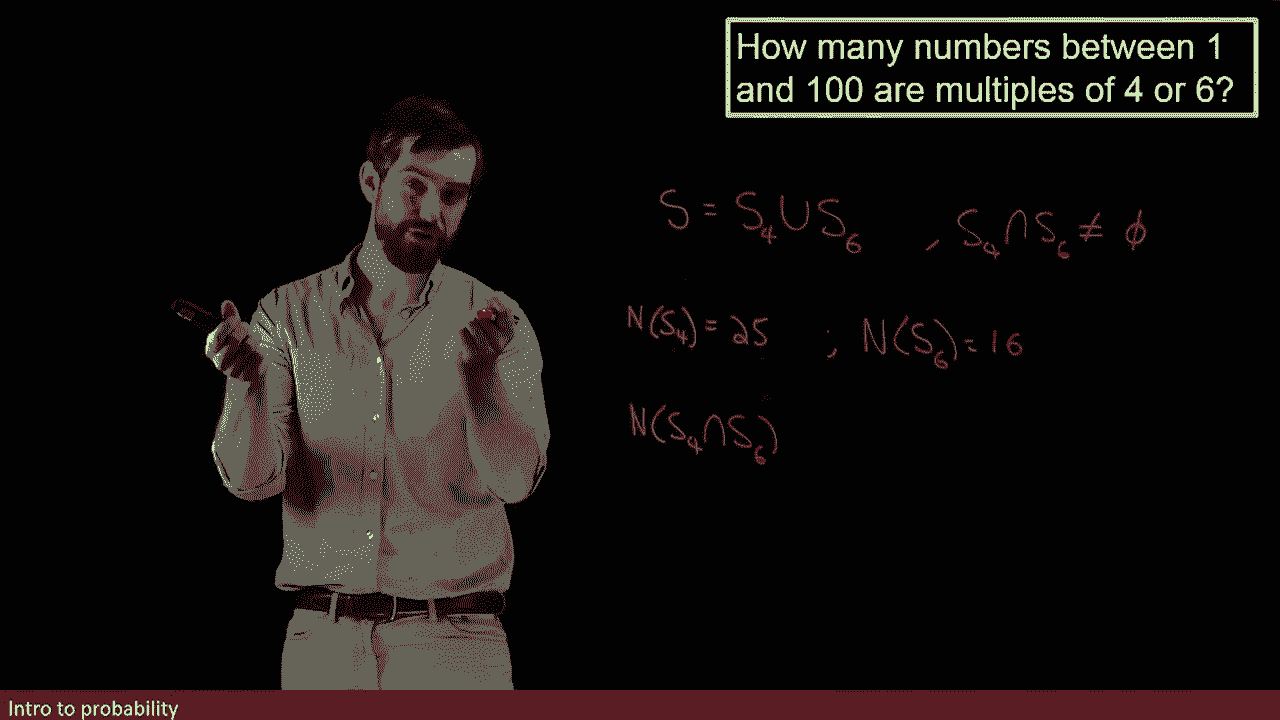 How many numbers between 1
and 100 are multiples of 4 or 6?
S = S₄ ∪ S₆ , S₄ ∩ S₆ ≠ ϕ
N(S₄) = 25 ; N(S₆) = 16
N(S₄ ∩ S₆)
Intro to probability